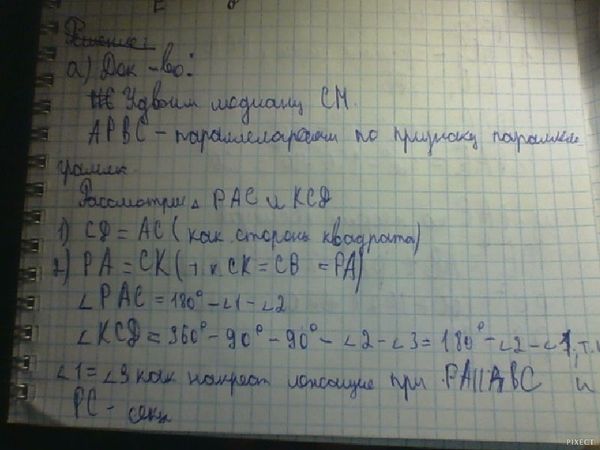 Решение:
а) Док-во:
Удвоим медиану СМ.
АРВС - параллелограмм по признаку параллело
грамма
Рассмотрим △ РАС и КСД
1) СД = АС (как стороны квадрата)
2) РА = СК (т.к СК = СВ = РА)
∠РАС = 180° - ∠1 - ∠2
∠КСД = 360° - 90° - 90° - ∠2 - ∠3 = 180° - ∠2 - ∠1, т.к
∠1 = ∠3 как накрест лежащие при РА||ВС и
РС - сек
PIXECT